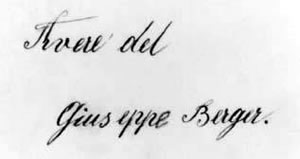 Avere del
Giuseppe Berger.